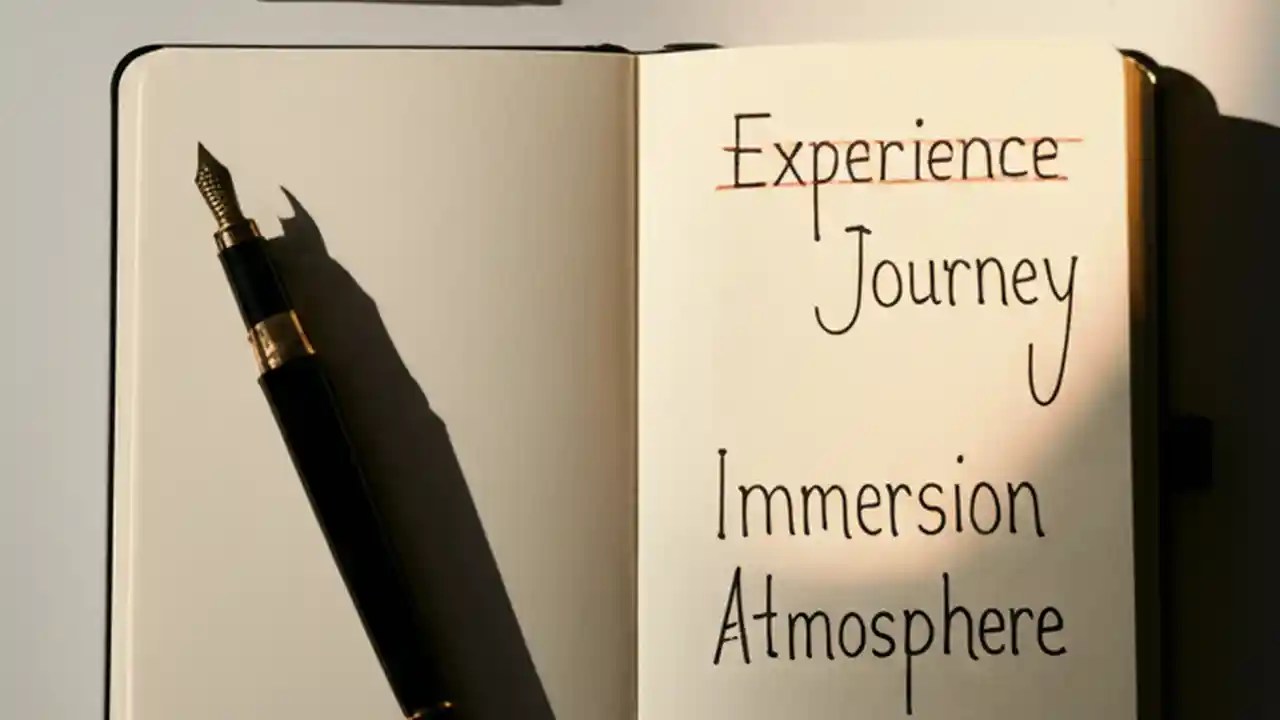 Experience
Journey
Immersion
Atmosphere